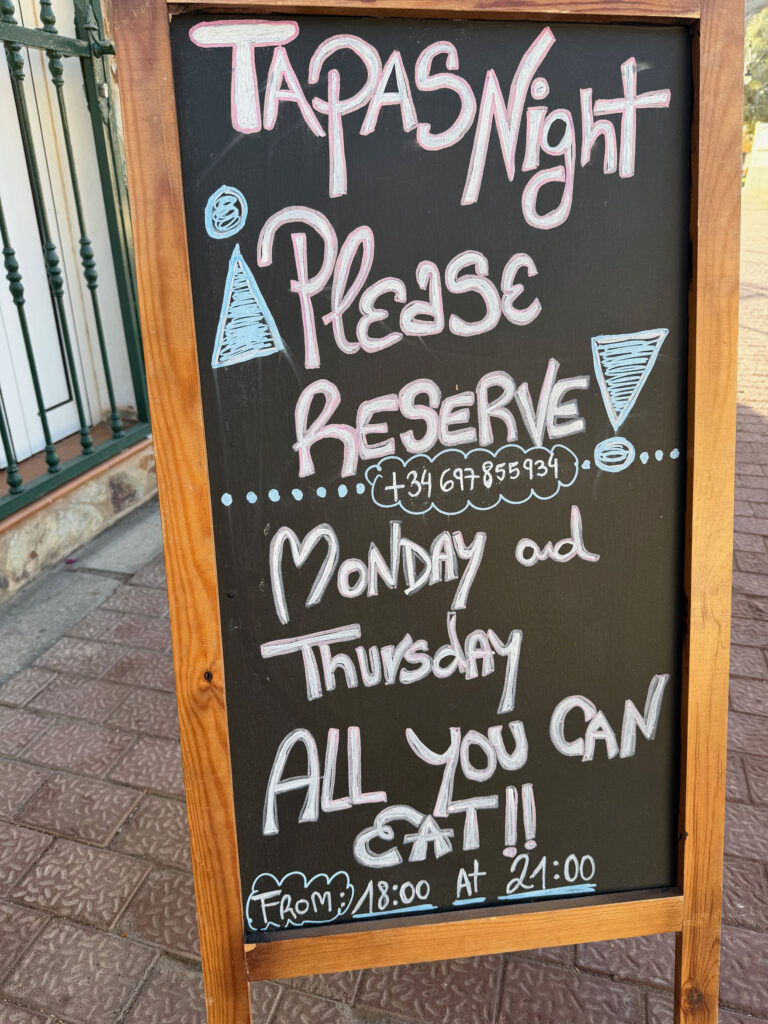 Tapas Night
¡Please
Reserve!
+34 697855934
Monday and
Thursday
All you can
eat!!
From: 18:00 At 21:00